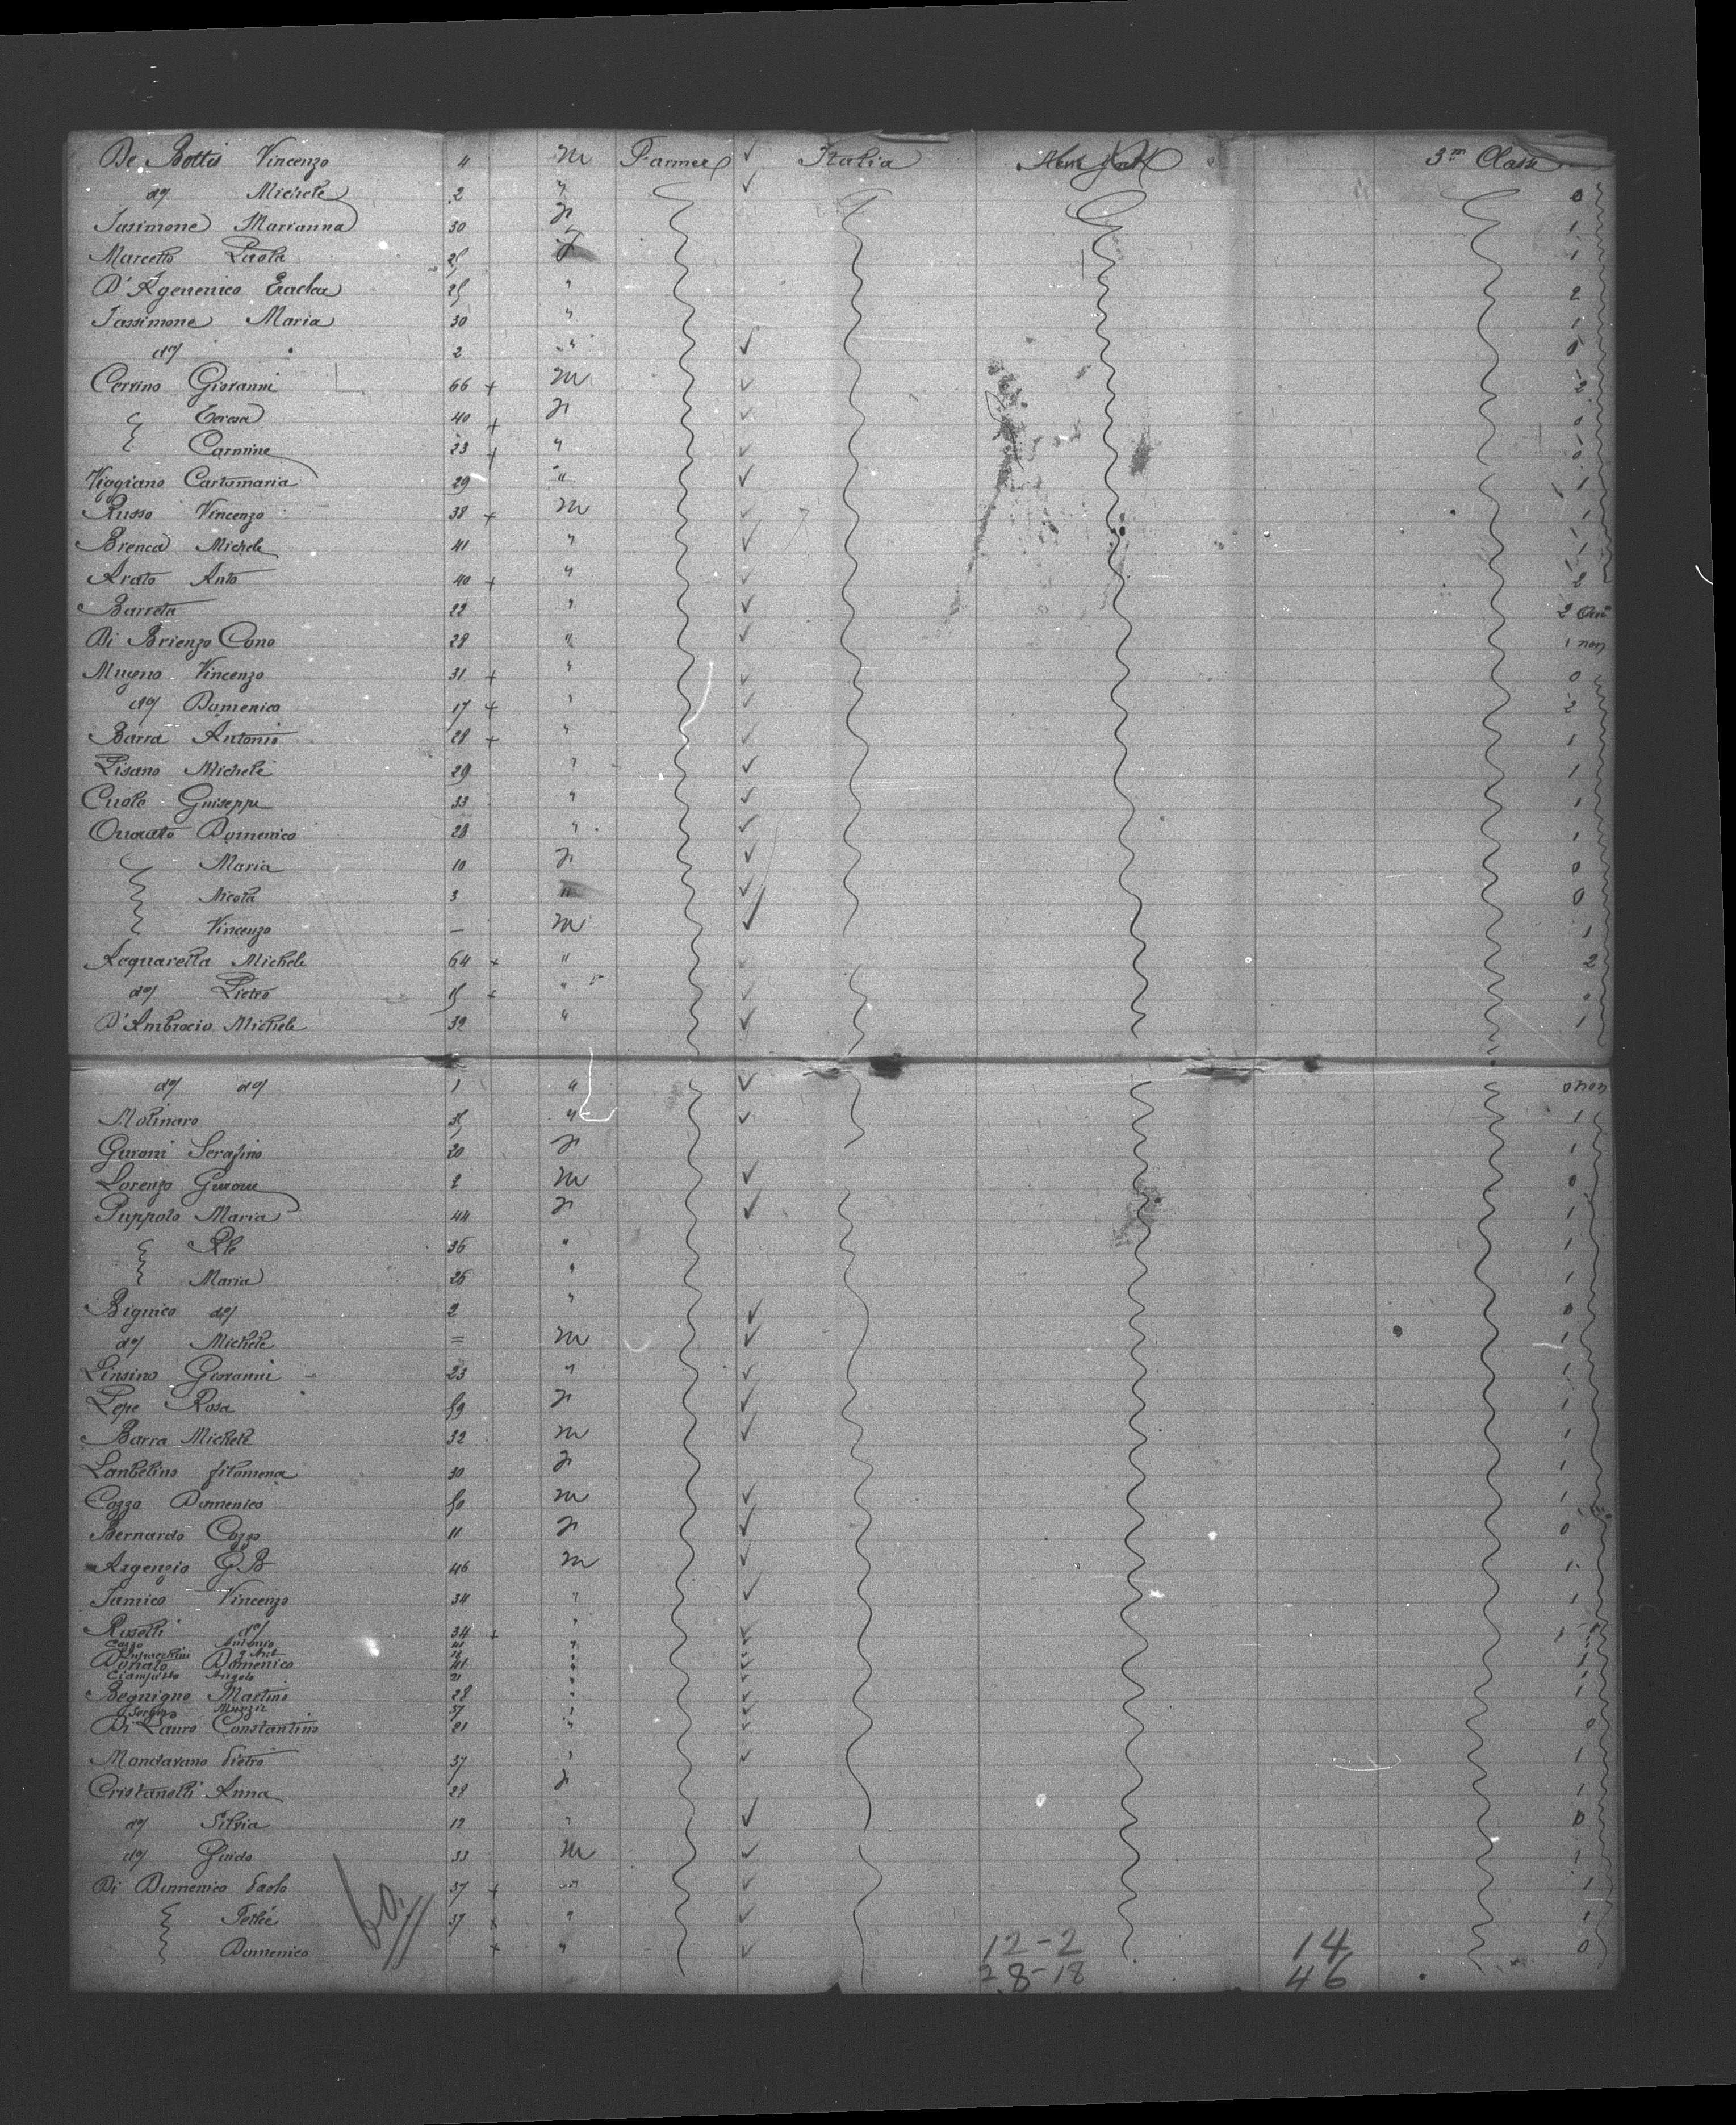 De Bottis Vincenzo 4 m Farmer ✓ Italia New York 3rd Class
do/ Michele 2 " ✓ 0
Iasimone Marianna 30 F 1
Marcetto Paola 25 F 1
D'Agenenico 25 " 2
Iassimone Maria 30 " 1
do/ " 2 " ✓ 0
Cerrino Giovanni 66 + m ✓ 2
Teresa 40 + F ✓ 0
Carmine 23 + " ✓ 0
Viggiano Cartomaria 29 " ✓ 1
Russo Vincenzo 38 + m ✓ 1
Brenca Michele 41 " ✓ 1
Arato Anto 40 + " ✓ 2
Barreta 22 " ✓ 2
Di Brienzo Cono 28 " ✓ 1 non
Mugno Vincenzo 31 + " ✓ 0
do/ Domenico 17 + " ✓ 2
Barra Antonio 28 + " ✓ 1
Pisano Michele 29 " ✓ 1
Cuolo Guiseppe 33 " ✓ 1
Domenico 28 " ✓ 1
Maria 10 F ✓ 0
Nicola 3 " ✓ 0
Vincenzo — m ✓ 1
Acquarella Michele 64 + " ✓ 2
do/ Pietro 15 + " ✓ 0
D'Ambrocio Michele 39 " ✓ 1
do/ do/ 1 " ✓ 0 non
Molinaro 35 " ✓ 1
Guroni Serafino 20 F 1
Lorenzo 2 m ✓ 0
Puppolo Maria 44 F ✓ 1
36 " 1
Maria 26 " 1
Bignico do/ 2 " ✓ 0
do/ Michele = m ✓ 1
Linsino Giovanni 23 " ✓ 1
Pepe Rosa 59 F ✓ 1
Barra Michele 32 m ✓ 1
Lanbelino filomena 30 F 1
Cozzo Domenico 50 m ✓ 1
Bernardo Cozzo 11 F ✓ 0
Argenzio G B 46 m ✓ 1
Iamico Vincenzo 34 " ✓ 1
Roselli do/ 34 + " ✓ 1
Cozzo Antonio " ✓
Donato Domenico 41 " ✓ 1
Angelo 21 " ✓
Begnigno Martino 28 " ✓ 1
37 " ✓
Di Lauro Constantino 21 " ✓ 0
Mondavano Pietro 37 " ✓ 1
Cristanelli Anna 28 F 1
do/ Silvia 12 " ✓ 0
do/ Guido 33 m ✓ 1
Di Domenico Paolo 37 + " ✓ 1
Felice 37 + " ✓ 1
Domenico + " ✓ 0
60
12-2 14
28-18 46